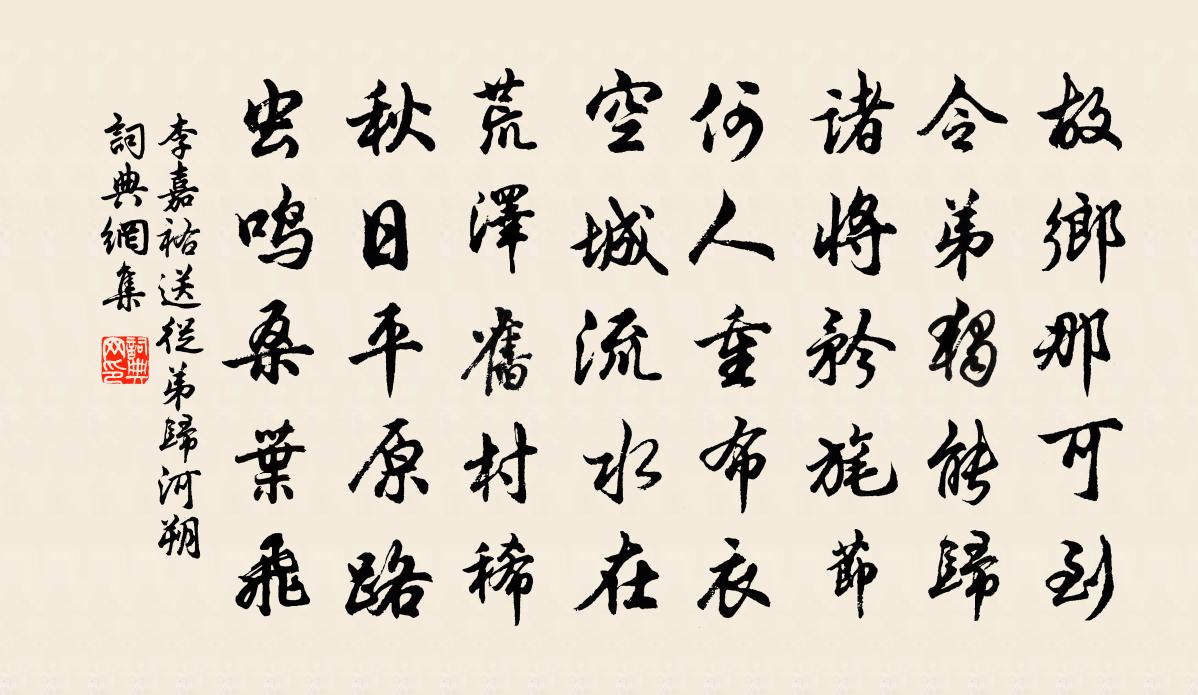 故鄉那可到
令弟獨能歸
諸將矜旄節
何人重布衣
空城流水在
荒澤舊村稀
秋日平原路
虫鳴桑葉飛
李嘉祐送從弟歸河朔
詞典網集
詞典网印